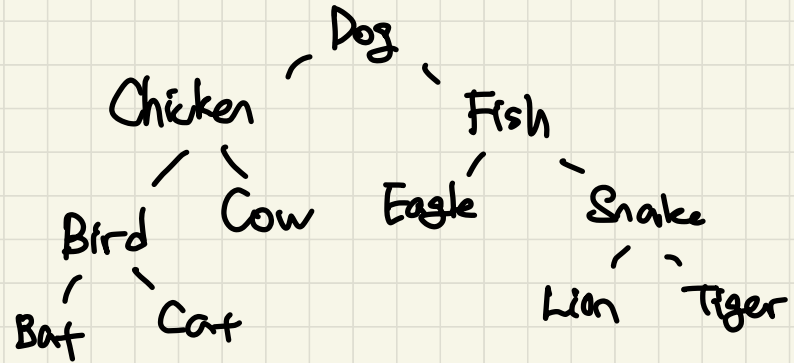 Dog
Chicken Fish
Bird Cow Eagle Snake
Bat Cat Lion Tiger